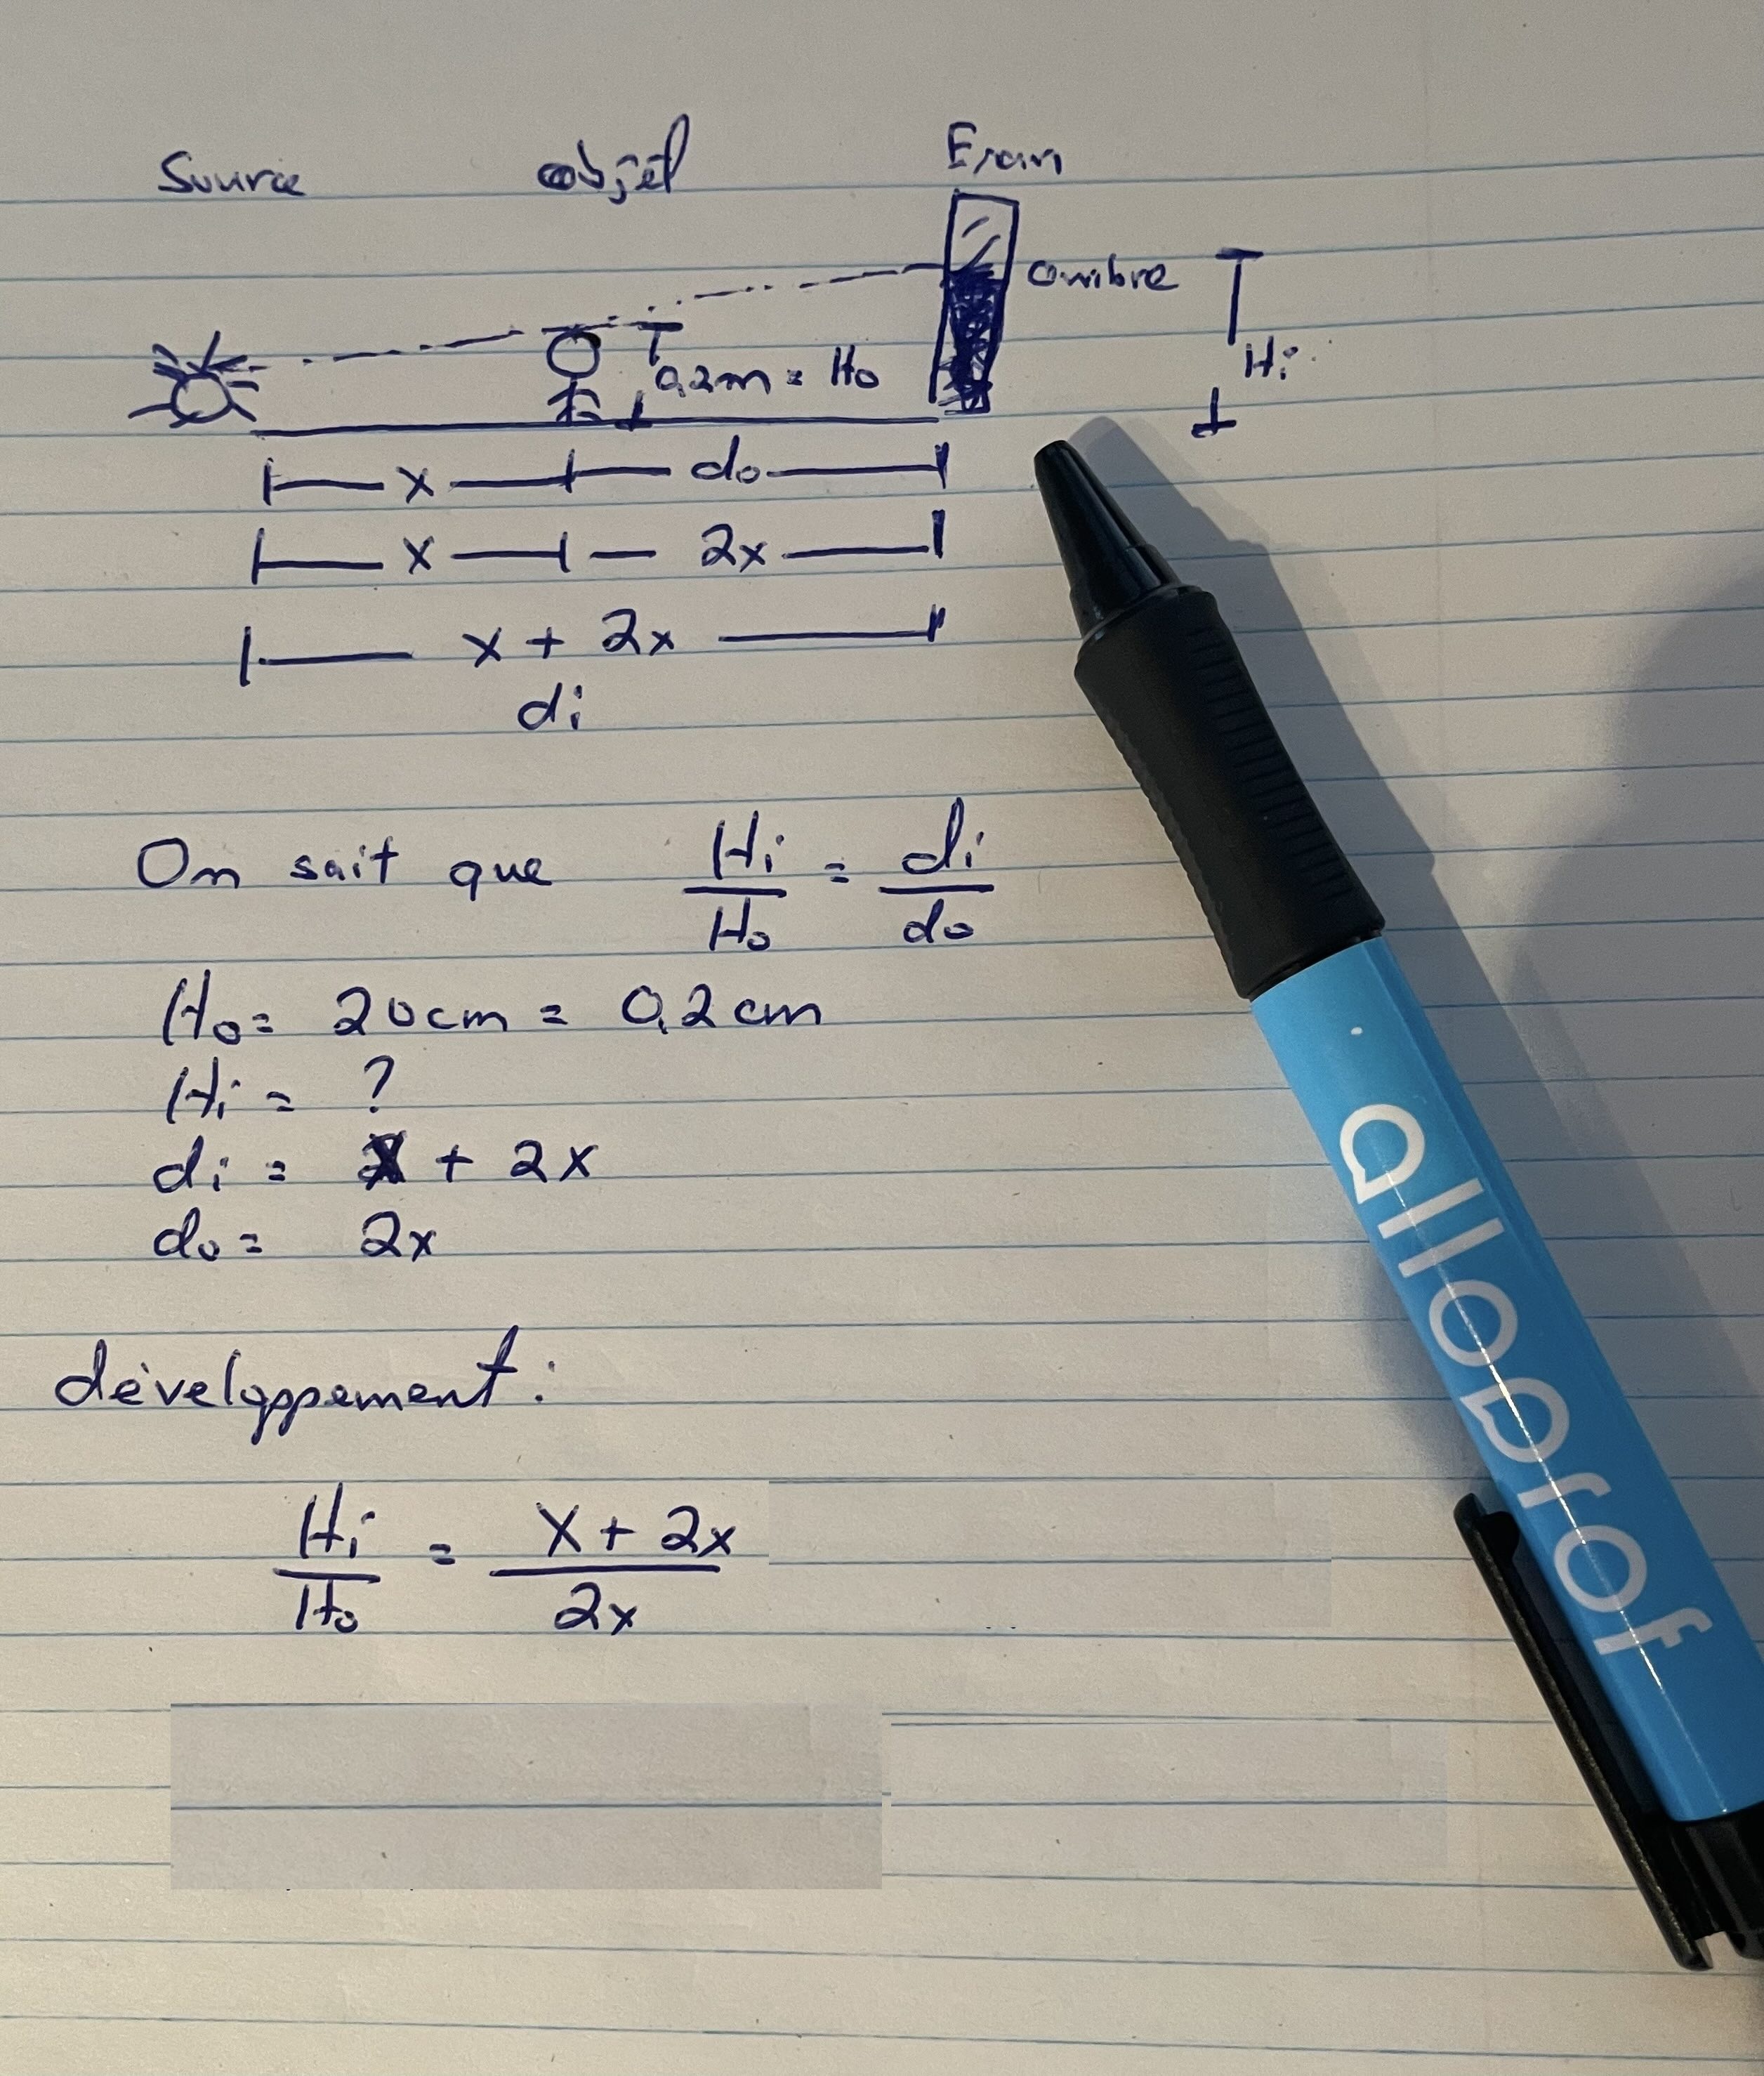 Source objet Écran
ombre
0,2m = Ho
Hi
x do
x 2x
x + 2x
di
On sait que Hi/Ho = di/do
Ho = 20cm = 0,2cm
Hi = ?
di = x + 2x
do = 2x
développement :
Hi/Ho = x + 2x/2x
alloprof